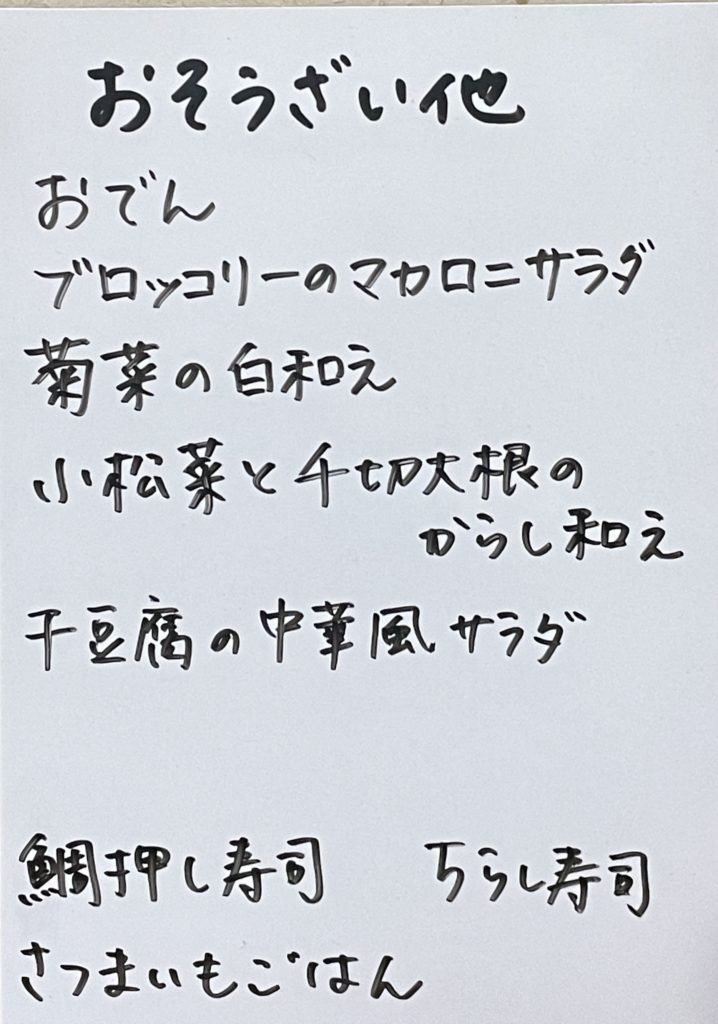 おそうざい他
おでん
ブロッコリーのマカロニサラダ
菊菜の白和え
小松菜と千切大根の
からし和え
干豆腐の中華風サラダ
鯛押し寿司 ちらし寿司
さつまいもごはん